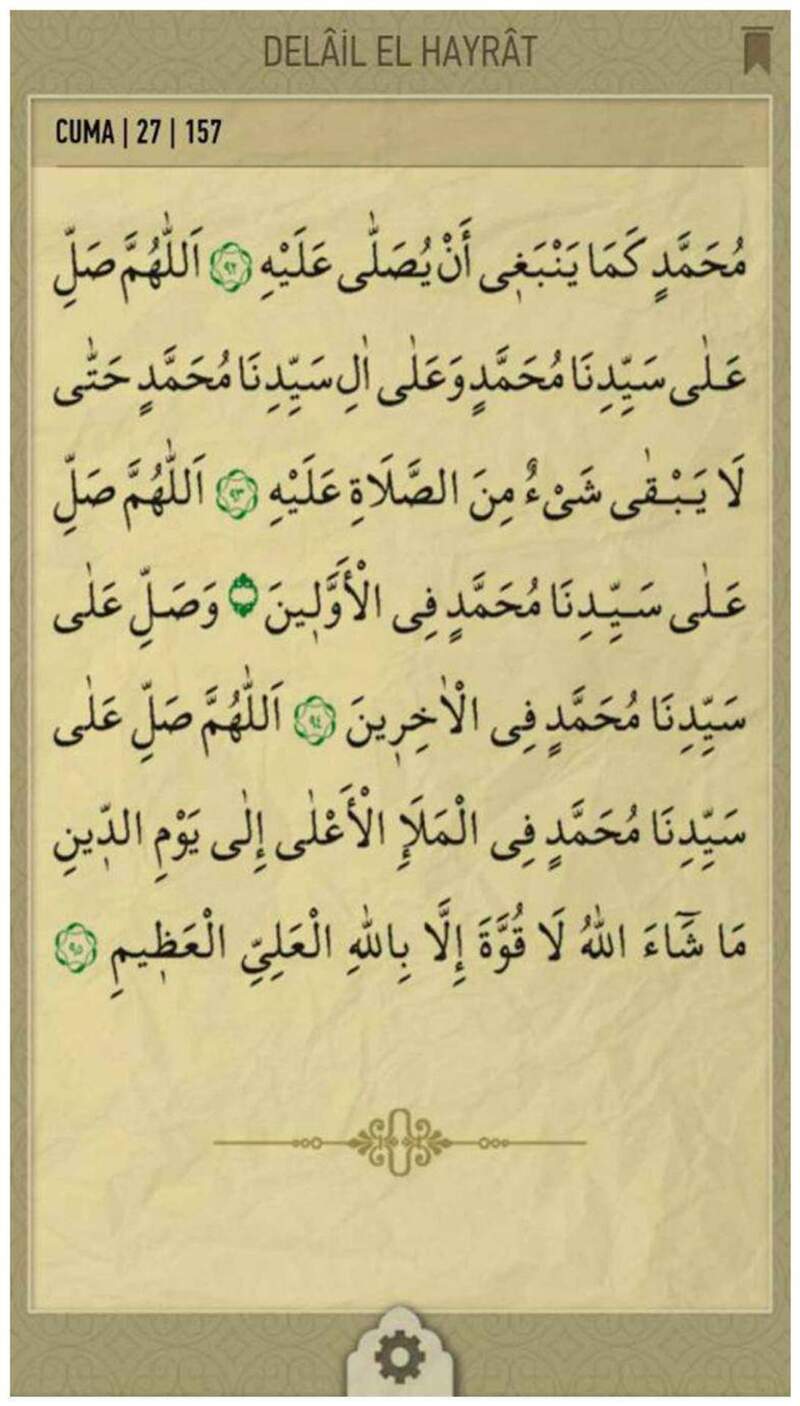 DELÂİL EL HAYRÂT
CUMA | 27 | 157
مُحَمَّدٍ كَمَا يَنْبَغٖى أَنْ يُصَلّٰى عَلَيْهِ ﴿٩٢﴾ اَللّٰهُمَّ صَلِّ
عَلٰى سَيِّدِنَا مُحَمَّدٍ وَعَلٰى اٰلِ سَيِّدِنَا مُحَمَّدٍ حَتّٰى
لَا يَبْقٰى شَىْءٌ مِنَ الصَّلَاةِ عَلَيْهِ ﴿٩٣﴾ اَللّٰهُمَّ صَلِّ
عَلٰى سَيِّدِنَا مُحَمَّدٍ فِى الْأَوَّلٖينَ وَصَلِّ عَلٰى
سَيِّدِنَا مُحَمَّدٍ فِى الْاٰخِرٖينَ ﴿٩٤﴾ اَللّٰهُمَّ صَلِّ عَلٰى
سَيِّدِنَا مُحَمَّدٍ فِى الْمَلَإِ الْأَعْلٰى إِلٰى يَوْمِ الدّٖينِ
مَا شَٓاءَ اللّٰهُ لَا قُوَّةَ إِلَّا بِاللّٰهِ الْعَلِيِّ الْعَظٖيمِ ﴿٩٥﴾